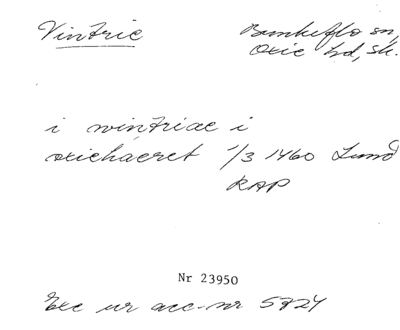 Vintrie
Bunkeflo sn,
Oxie hd, Sk.
i wintriae i
oxiehaeret 1/3 1460 Lund
RAP
Nr 23950
Exc ur acc-nr 5724